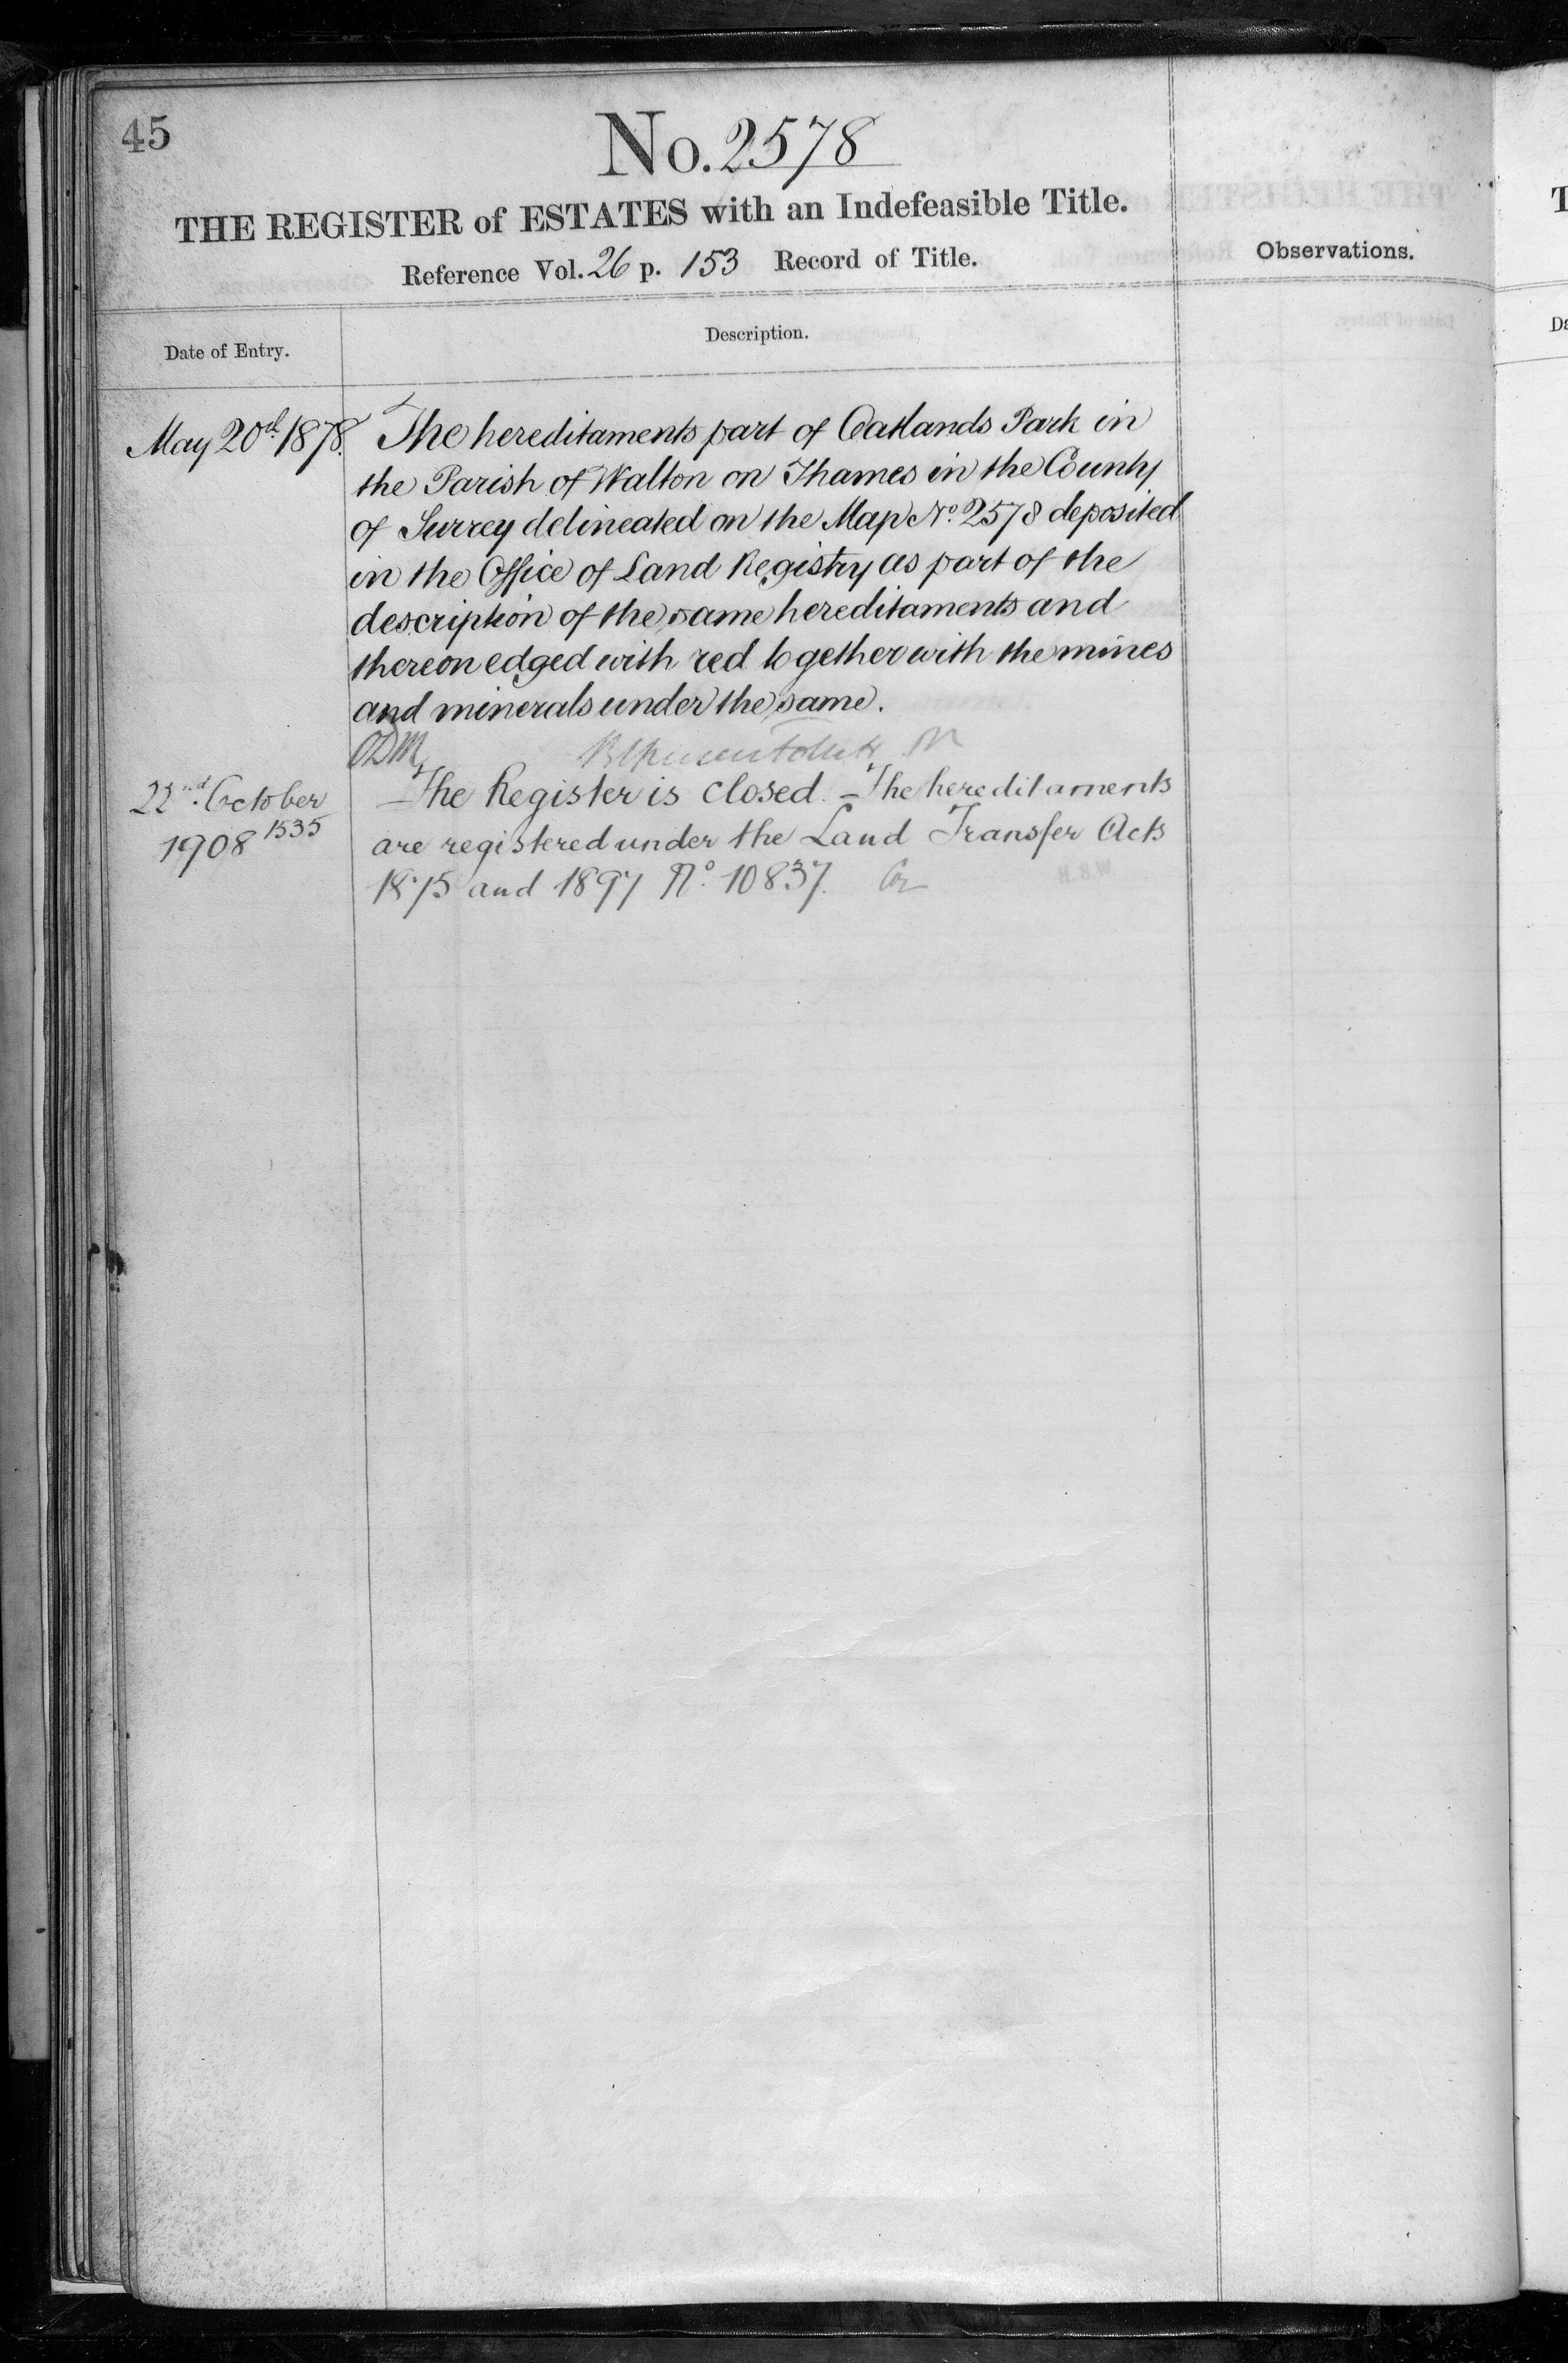 45
No. 2578
THE REGISTER of ESTATES with an Indefeasible Title.
Reference Vol. 26 p. 153 Record of Title.
Observations.
Date of Entry.
Description.
May 20th 1878. The hereditaments part of Oatlands Park in
the Parish of Walton on Thames in the County
of Surrey delineated on the Map No. 2578 deposited
in the Office of Land Registry as part of the
description of the same hereditaments and
thereon edged with red together with the mines
and minerals under the same.
22nd October The Register is closed. The hereditaments
1908 1535 are registered under the Land Transfer Acts
1875 and 1897 No. 10837.